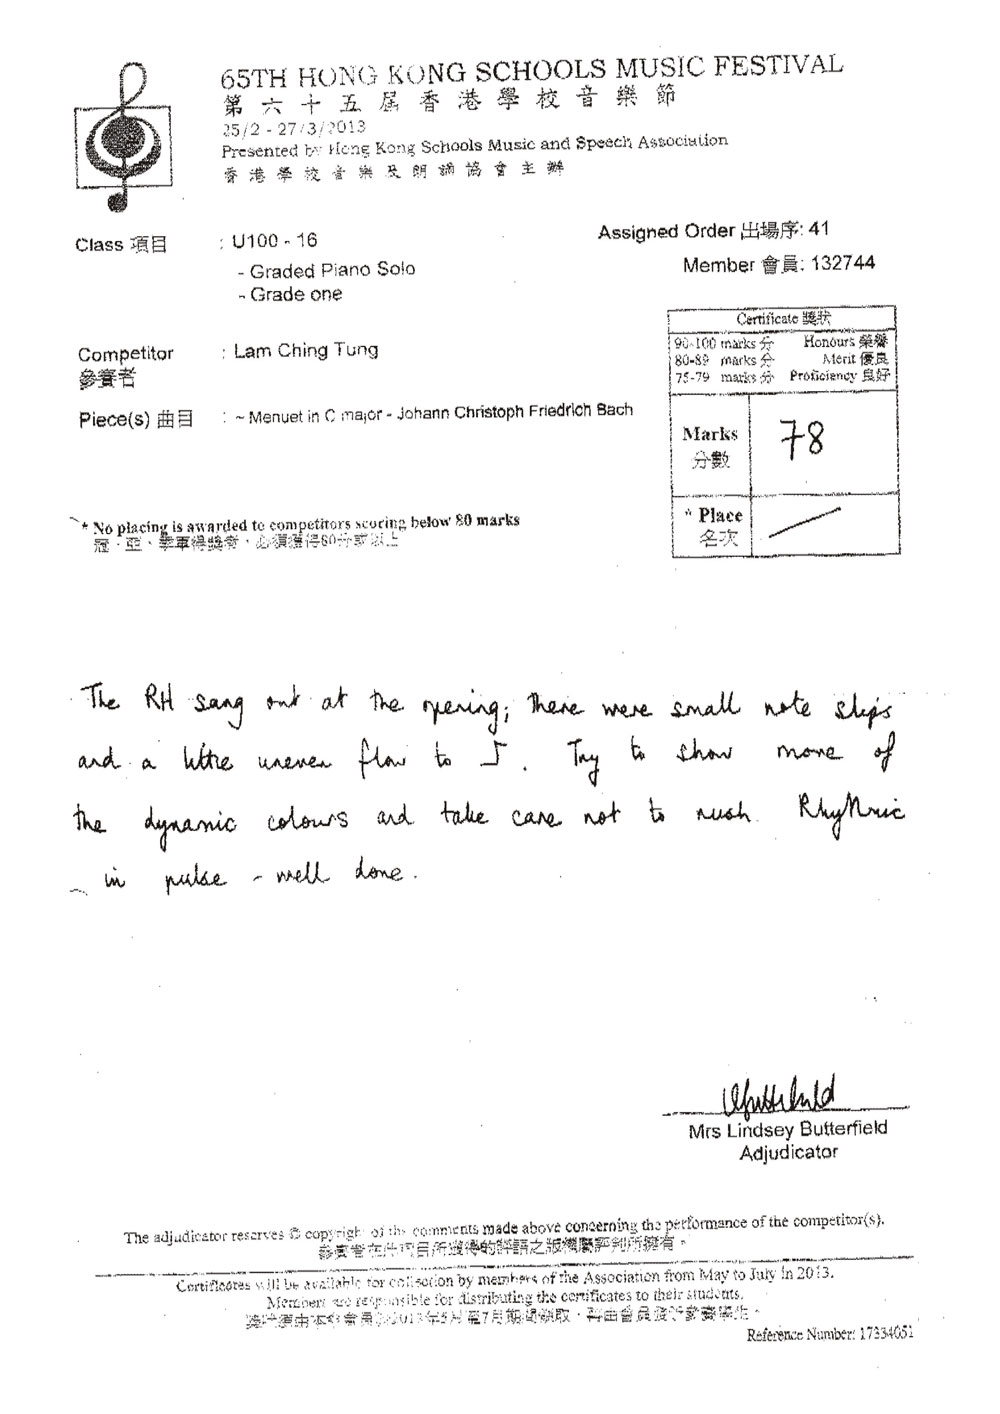 65TH HONG KONG SCHOOLS MUSIC FESTIVAL
第六十五屆香港學校音樂節
25/2 - 27/3/2013
Presented by Hong Kong Schools Music and Speech Association
香港學校音樂及朗誦協會主辦
Class 項目 : U100 - 16
Assigned Order 出場序: 41
- Graded Piano Solo
Member 會員: 132744
- Grade one
Certificate 獎狀
90-100 marks 分 Honours 榮譽
80-89 marks 分 Merit 優良
75-79 marks 分 Proficiency 良好
Competitor : Lam Ching Tung
參賽者
Piece(s) 曲目 : ~ Menuet in C major - Johann Christoph Friedrich Bach
Marks 78
分數
* Place
名次
* No placing is awarded to competitors scoring below 80 marks
冠、亞、季軍得獎者，必須獲得80分或以上
The RH sang out at the opening; there were small note slips
and a little uneven flow to . Try to show more of
the dynamic colours and take care not to rush. Rhythmic
in pulse - well done.
Mrs Lindsey Butterfield
Adjudicator
The adjudicator reserves © copyright of the comments made above concerning the performance of the competitor(s).
參賽者在此項目所獲得的評語之版權屬評判所擁有。
Certificates will be available for collection by members of the Association from May to July in 2013.
Members are responsible for distributing the certificates to their students.
獎狀須由本會會員於2013年5月至7月期間領取，再由會員發予參賽學生。
Reference Number: 17334051